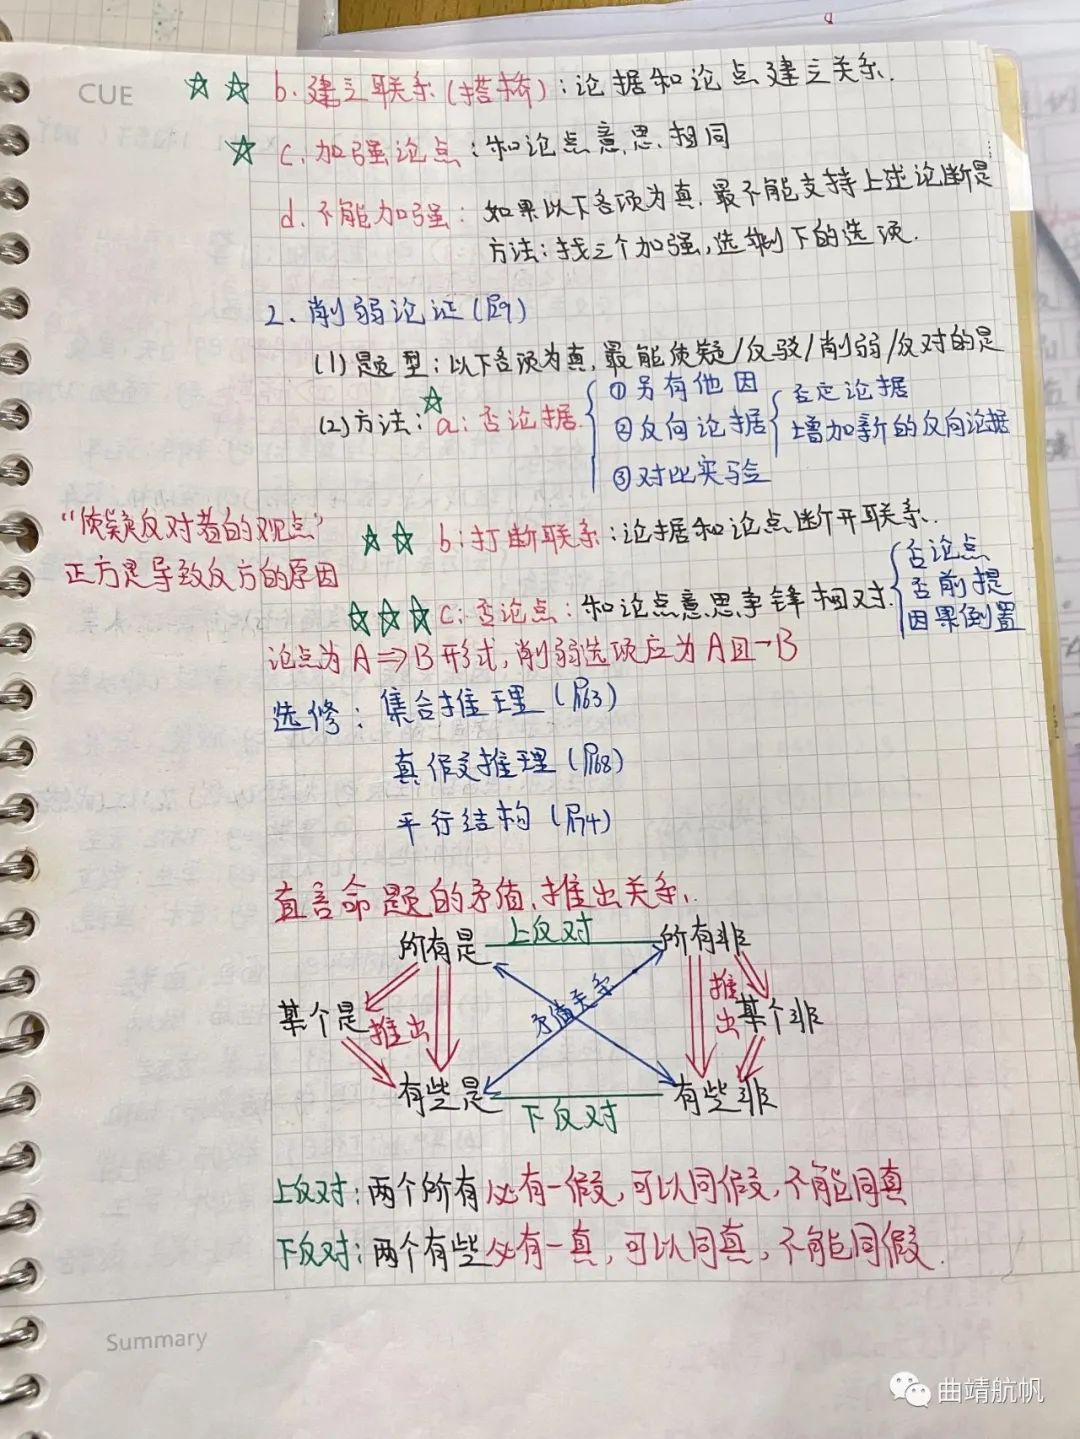 CUE
☆☆ b. 建立联系(搭桥):论据和论点建立关系.
☆ c. 加强论点:和论点意思相同
d. 不能加强:如果以下各项为真,最不能支持上述论断是
方法:找三个加强,选剩下的选项.
2. 削弱论证(P59)
(1)题型:以下各项为真,最能质疑/反驳/削弱/反对的是
(2)方法:☆a:否论据
①另有他因
②反向论据
否定论据
增加新的反向论据
③对比实验
"质疑反对着的观点"
正方是导致反方的原因
☆☆ b:打断联系:论据和论点断开联系.
☆☆☆ c:否论点:和论点意思争锋相对.
否论点
否前提
因果倒置
论点为A⇒B形式,削弱选项应为A且¬B
选修:集合推理(P63)
真假推理(P68)
平行结构(P74)
直言命题的矛盾,推出关系.
所有是 上反对 所有非
某个是 推出 矛盾关系 推出 某个非
有些是 下反对 有些非
上反对:两个所有必有一假,可以同假,不能同真
下反对:两个有些必有一真,可以同真,不能同假.
Summary
曲靖航帆